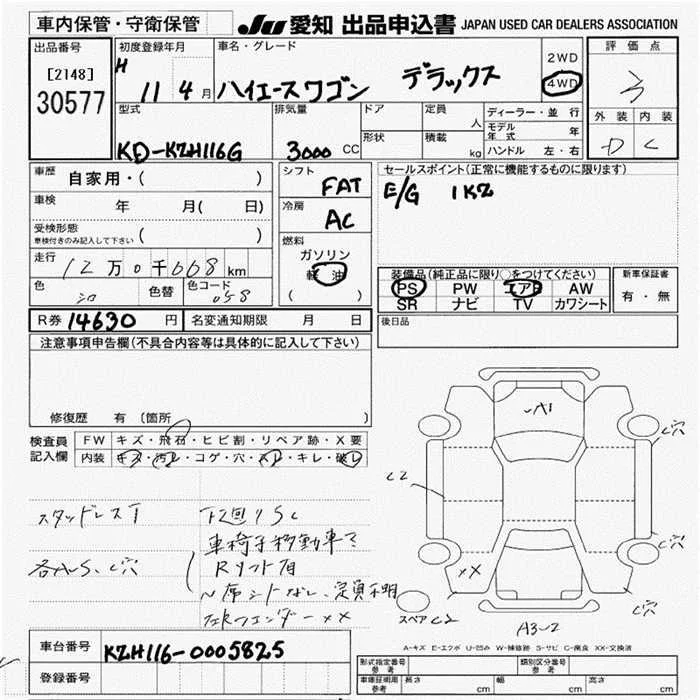 車内保管・守衛保管
JU 愛知 出品申込書 JAPAN USED CAR DEALERS ASSOCIATION
出品番号
[2148]
30577
初度登録年月
H 11 4 月
車名・グレード
ハイエースワゴン デラックス
2WD
4WD
評価点
3
外装 内装
D C
型式
KD-KZH116G
排気量
3000 CC
ドア
形状
定員
人
積載
kg
ディーラー・並行
モデル年式 年
ハンドル 左・右
車歴 自家用・( )
車検 年 月( 日)
受検形態
車検付きのみ記入して下さい ( )
走行 12万0千668 km
色 シロ 色替 色コード 058
シフト
FAT
冷房
AC
燃料
ガソリン
軽油
( )
セールスポイント(正常に機能するものに限ります)
E/G 1KZ
装備品(純正品に限り○をつけてください)
PS PW エアB AW
SR ナビ TV カワシート
新車保証書
有・無
R券 14630 円 名変通知期限 月 日
後日品
注意事項申告欄(不具合内容等は具体的に記入して下さい)
修復歴 有 (箇所 )
検査員記入欄
FW キズ・飛石・ヒビ割・リペア跡・X要
内装 キズ・汚レ・コゲ・穴・スレ・キレ・破レ
スタッドレスT
下廻りSC
車椅子移動車
各AUS、C穴
Rリフト有
席シートなし、定員不明
左Rフェンダーxx
A1
C穴
C2
C穴
xx
C穴
スペア C2
A3-2
A-キズ E-エクボ U-凹み W-補修跡 S-サビ C-腐食 XX-交換済
車台番号 KZH116-0005825
登録番号
形式指定番号 参考
類別区分番号 参考
車庫証明用 参考 長さ cm 幅 cm 高さ cm